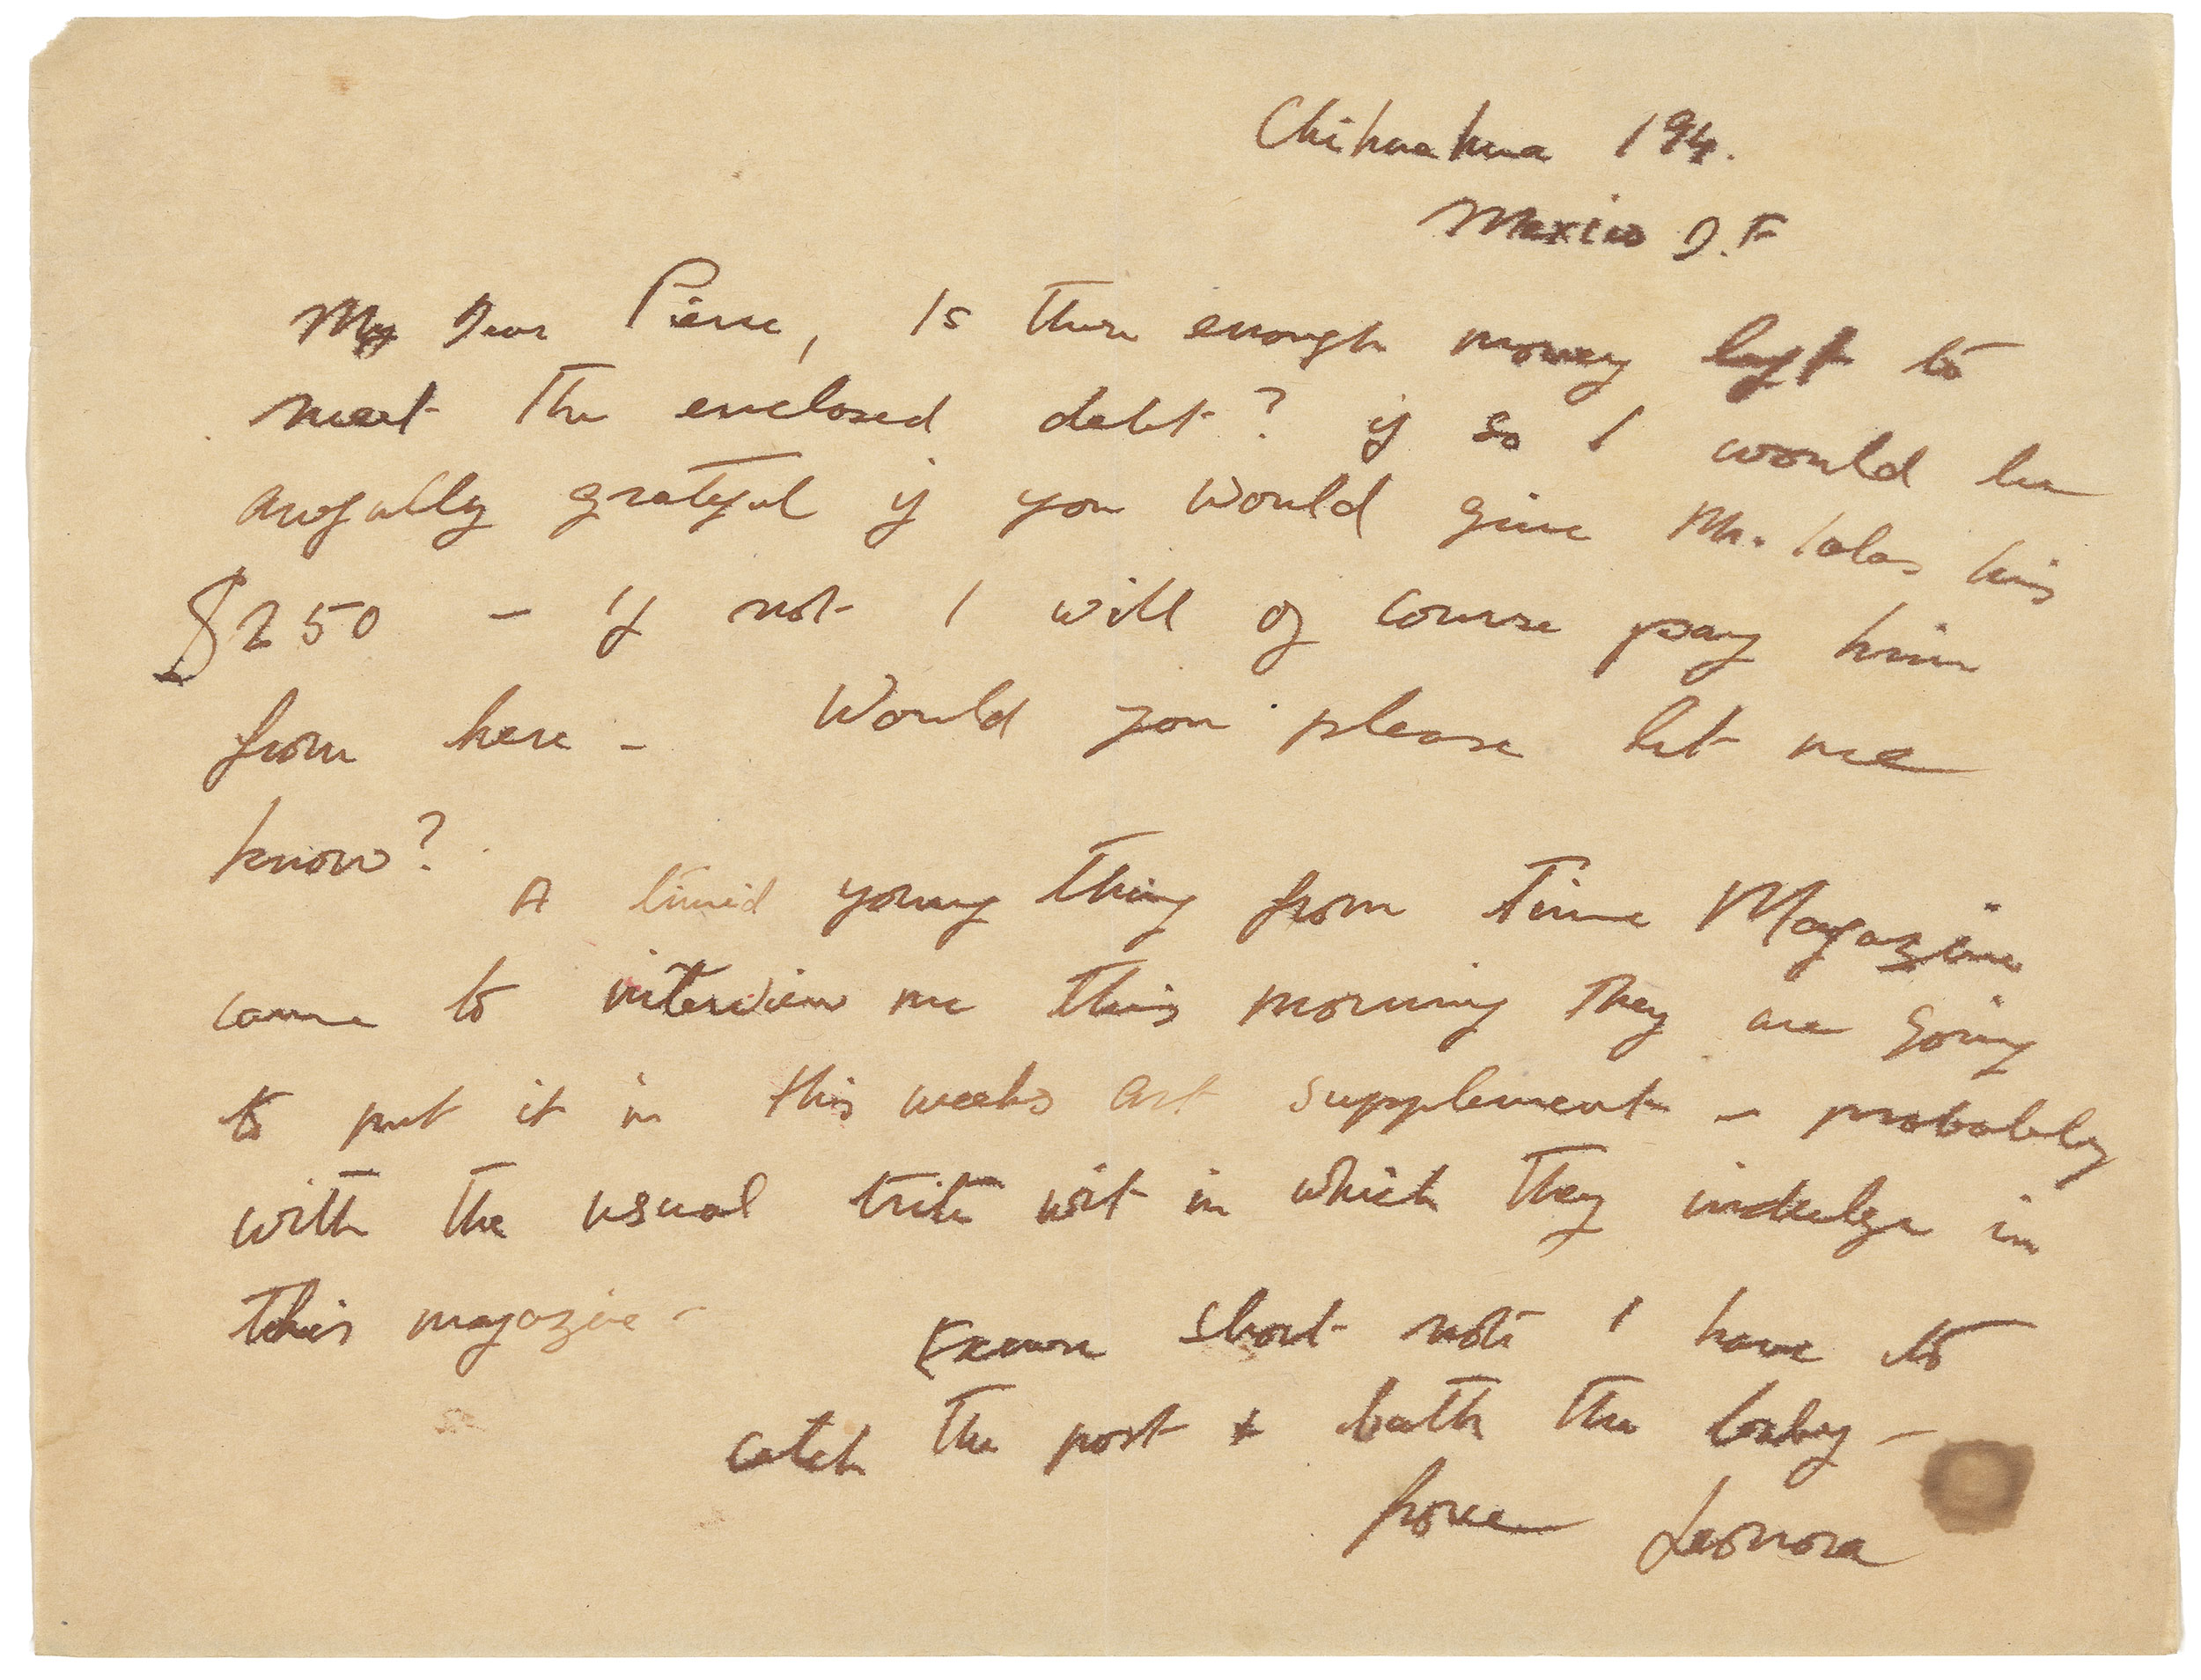 Chihuahua 194.
Mexico D.F
My Dear Pierre, Is there enough money left to
meet the enclosed debt? if so I would be
awfully grateful if you would give Mr. Iolas his
$250 – If not I will of course pay him
from here – Would you please let me
know?
A timid young thing from Time Magazine
came to interview me this morning they are going
to put it in this weeks art supplement – probably
with the usual trite wit in which they indulge in
this magazine –
Excuse short note I have to
catch the post & bath the baby –
Love Leonora